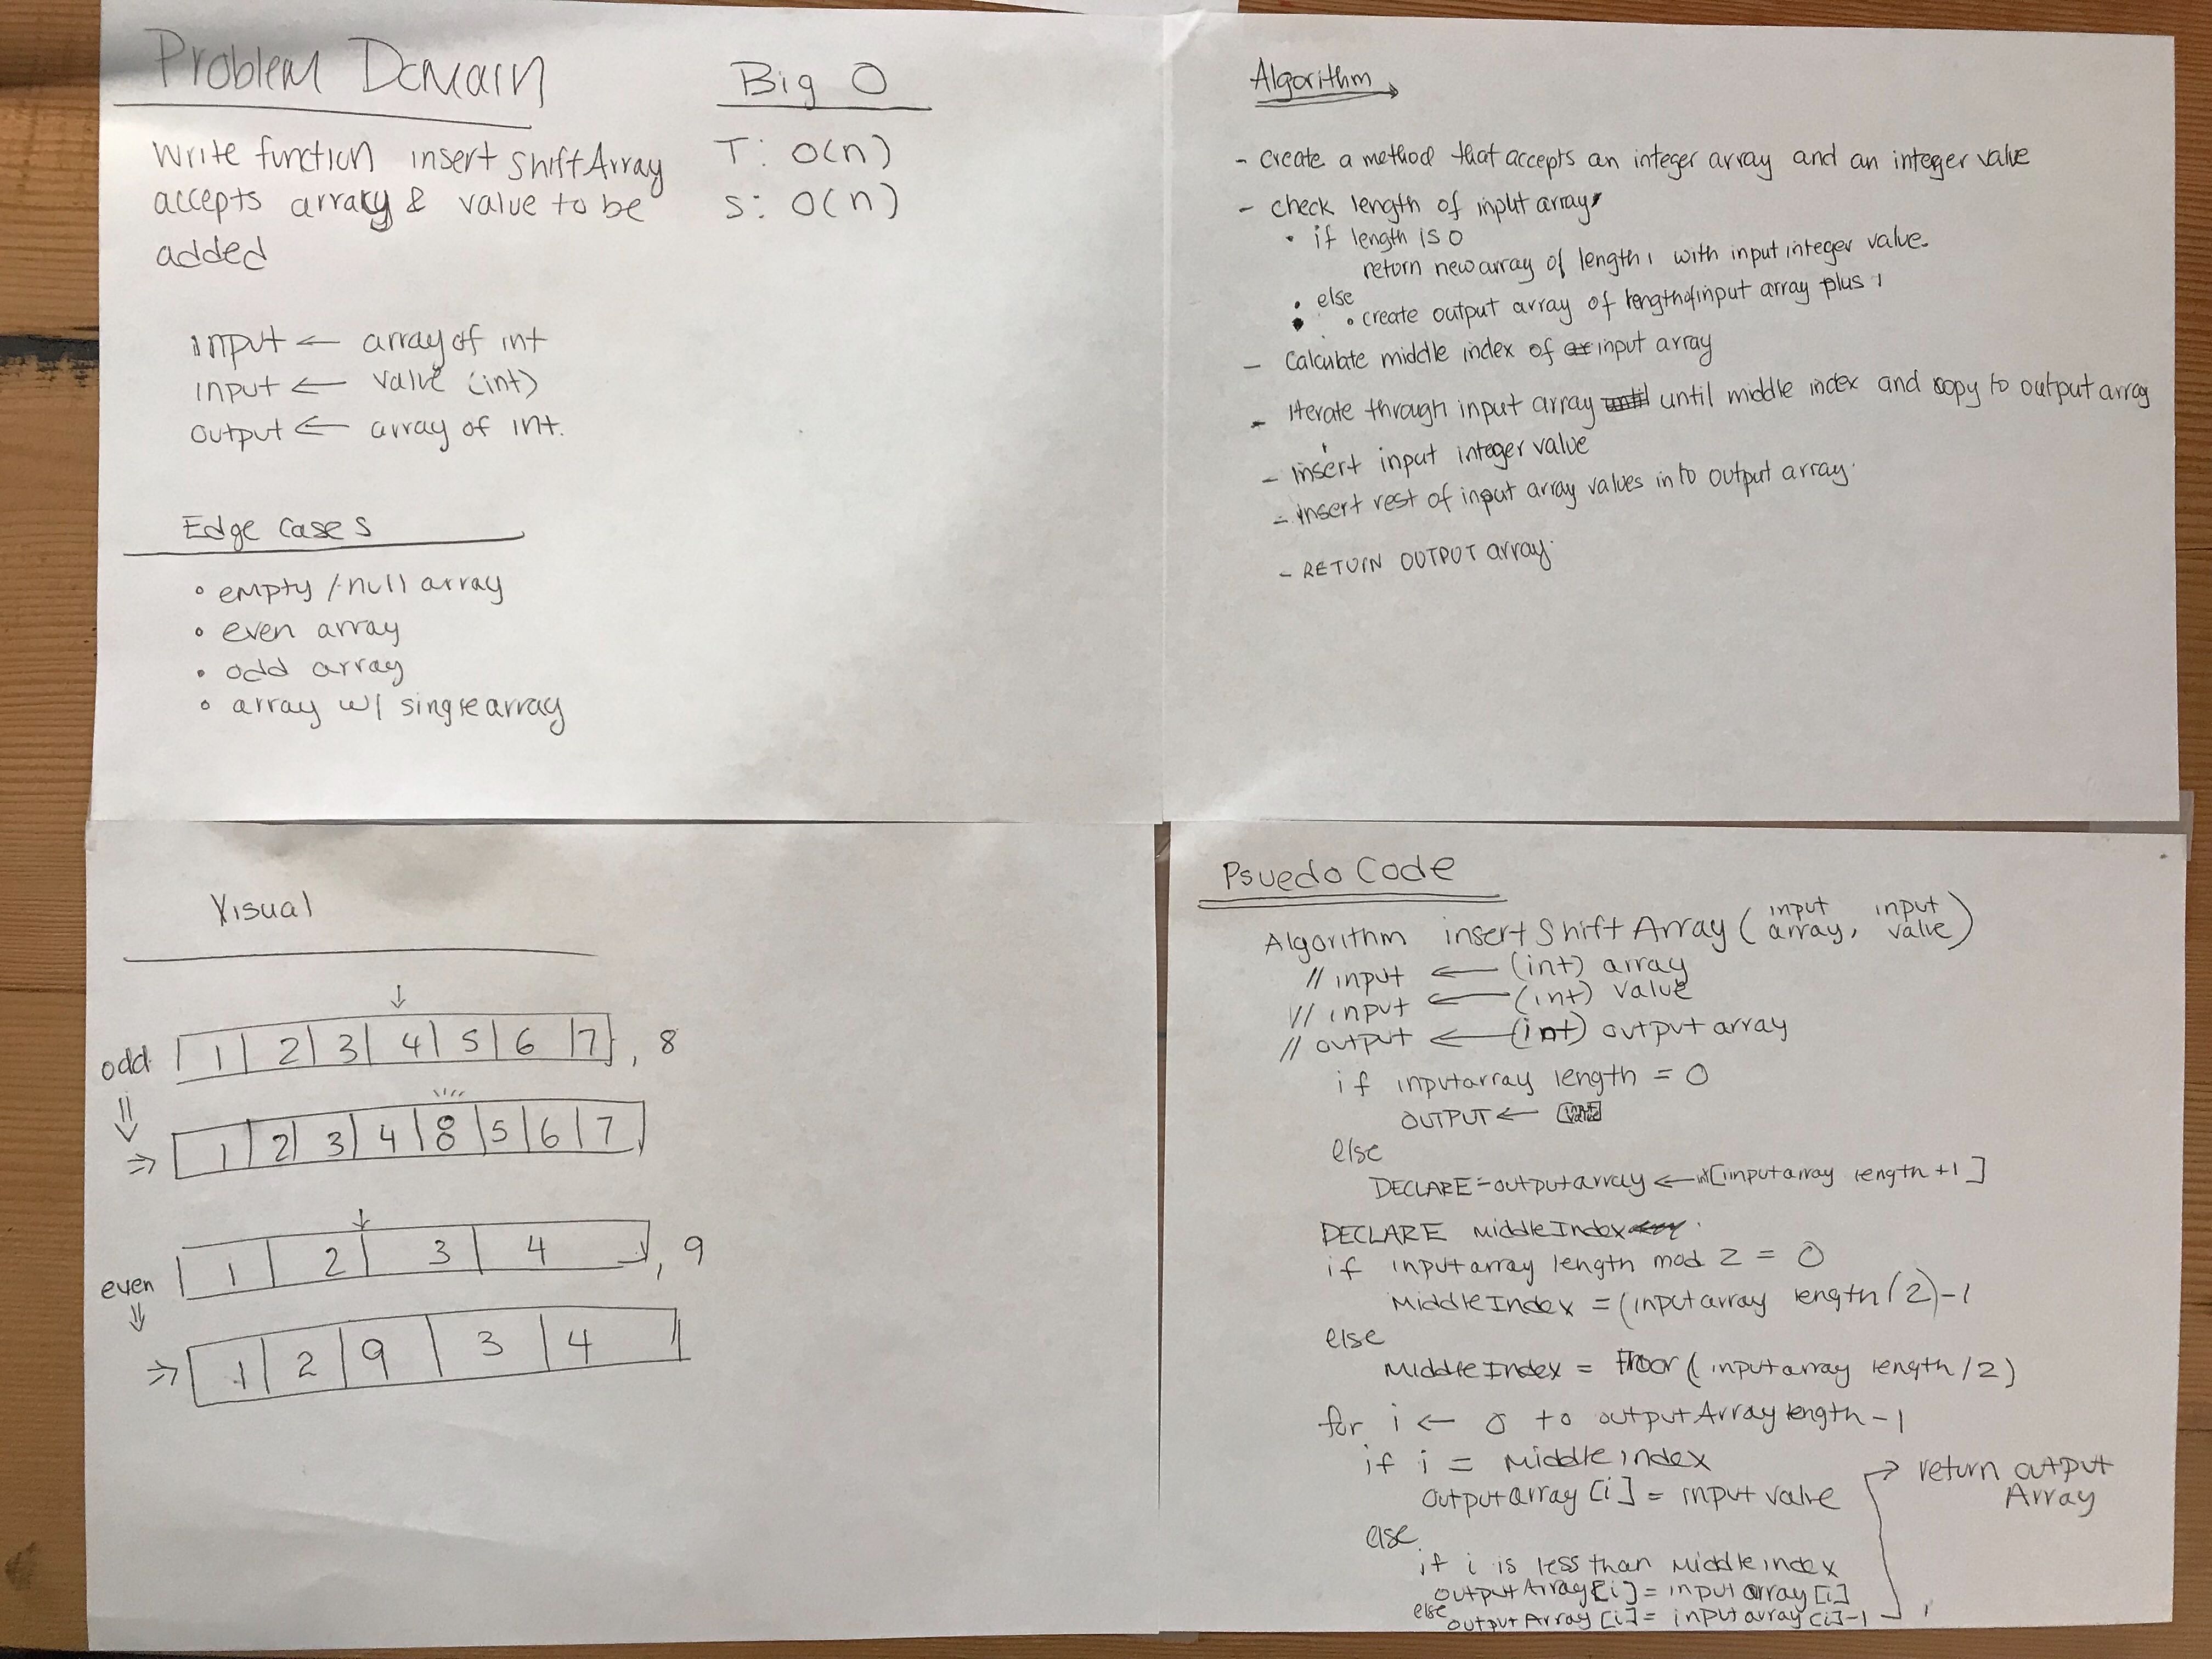 Problem Domain
Write function insertShiftArray
accepts array & value to be
added
input ← array of int
input ← value (int)
output ← array of int.
Edge Cases
• empty / null array
• even array
• odd array
• array w/ single array
Big O
T: O(n)
S: O(n)
Algorithm
- create a method that accepts an integer array and an integer value
- check length of input array
• if length is 0
return new array of length 1 with input integer value.
• else
• create output array of length of input array plus 1
- Calculate middle index of input array
- iterate through input array until middle index and copy to output array
- insert input integer value
- insert rest of input array values into output array.
- RETURN OUTPUT array.
Visual
↓
odd 1 2 3 4 5 6 7 , 8
⇓
⇒ 1 2 3 4 8 5 6 7
↓
even 1 2 3 4 , 9
⇓
⇒ 1 2 9 3 4
Psuedo Code
Algorithm insertShiftArray (input array, input value)
// input ← (int) array
// input ← (int) value
// output ← (int) output array
if inputarray length = 0
OUTPUT ←
else
DECLARE = outputarray ← int[inputarray length + 1]
DECLARE middleIndex
if inputarray length mod 2 = 0
MiddleIndex = (inputarray length / 2) - 1
else
MiddleIndex = Floor (inputarray length / 2)
for i ← 0 to outputArray length - 1
if i = Middleindex
outputarray [i] = input value
else
if i is less than Middleindex
outputArray[i] = input array [i]
else outputArray [i] = input array [i] - 1
→ return output
Array